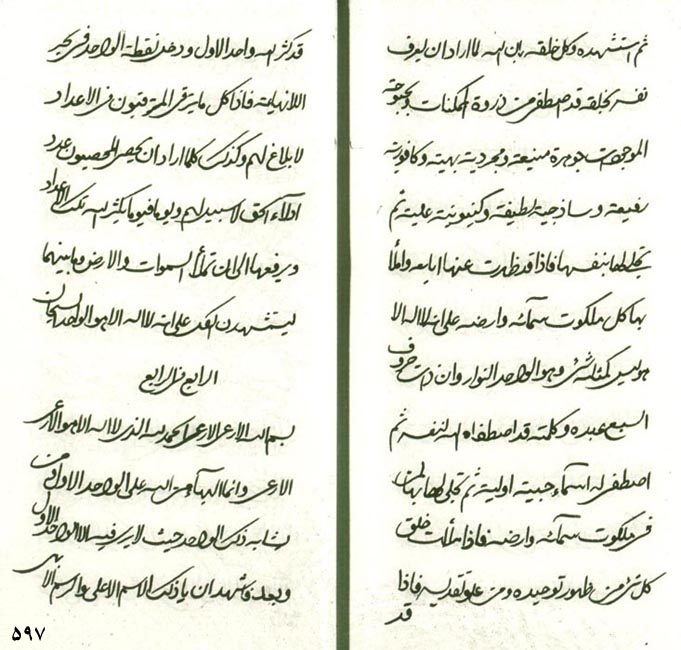 ثم استشهده وكل خلقه بان الله لما اراد ان يعرف
نفسه بخلقه قد اصطفى من ذروة الممكنات وبحبوحة
الموجودات جوهرة منيعة ومجردية بهية وكافورية
رفيعة وساذجية لطيفة وكينونية علية ثم
تجلى لها بنفسها فاذا قد ظهرت عنها اياته واملأ
بها كل ملكوت سمائه وارضه على انه لا اله الا
هو ليس كمثله شئ وهو الواحد النوار وان ذات حروف
السبع عبده وكلمته قد اصطفاه الله لنفسه ثم
اصطفى له اسماء حبية اولية ثم تجلى لها بها لمن
فى ملكوت سمائه وارضه فاذا ملأت خلق
كل شئ من ظهور توحيده ومن علو تقديسه فاذا
قد
قد كثر الله واحد الاول ودخل نقطة الواحد فى بحر
اللانهاية فاذا كل ما يرقى المرتقبون فى الاعداد
لا بلاغ لهم وكذلك كلما اراد ان يحصى المحصيون عدد
ادلاء الحق لا سبيل لهم ويوما فيوما يكثر الله تلك الاعداد
ويرفعها الى ان تملأ السموات والارض وما بينهما
ليشهدن الكل على انه لا اله الا هو الواحد السبحان
الرابع فى الرابع
بسم الله الازعر الازعر الحمد لله الذى لا اله الا هو الازعر
الازعر وانما البهاء من الله على الواحد الاول ومن
يشابه ذلك الواحد حيث لا يرى فيه الا الواحد الاول
وبعد فاشهد ان يا ذلك الاسم الاعلى والرسم الابهى
٥٩٧